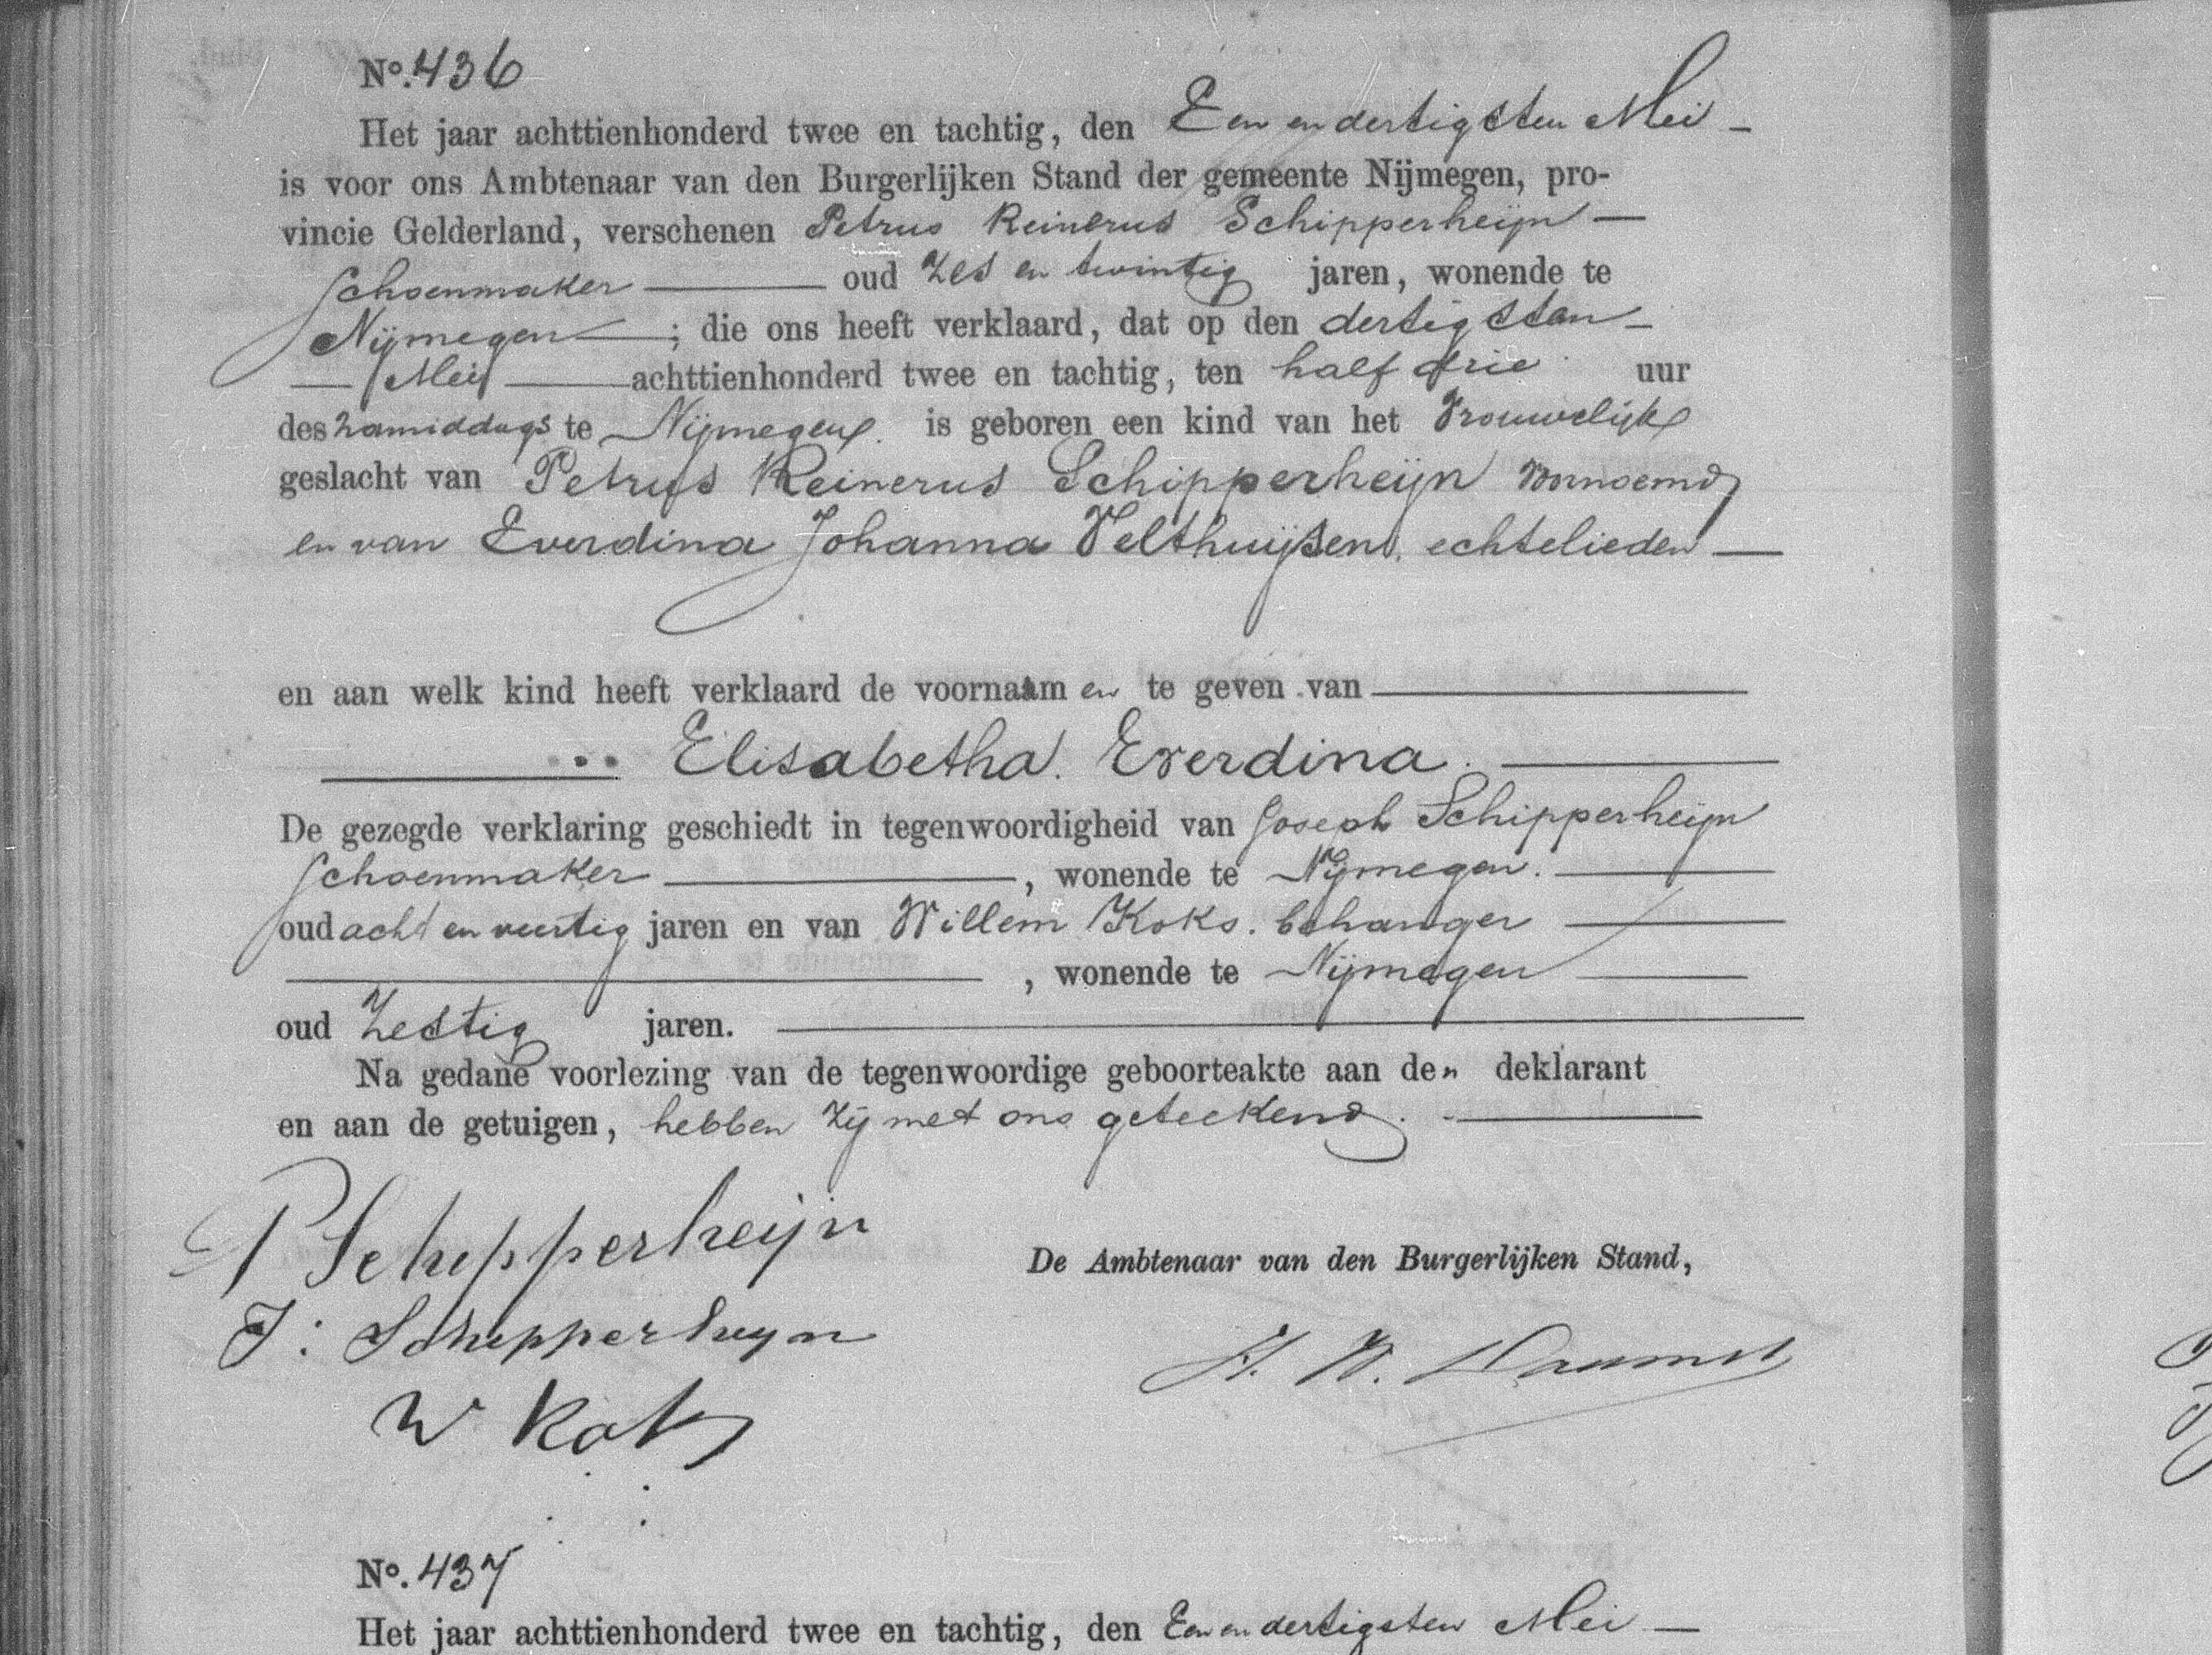 No. 436
Het jaar achttienhonderd twee en tachtig, den Een en dertigsten Mei -
is voor ons Ambtenaar van den Burgerlijken Stand der gemeente Nijmegen, pro-
vincie Gelderland, verschenen Petrus Reinerus Schipperheijn —
Schoenmaker — oud Zes en twintig jaren, wonende te
Nijmegen — ; die ons heeft verklaard, dat op den dertigsten -
— Mei — achttienhonderd twee en tachtig, ten half drie uur
des namiddags te Nijmegen. is geboren een kind van het Vrouwelijk
geslacht van Petrus Reinerus Schipperheijn voornoemd
en van Everdina Johanna Velthuijsen, echtelieden —
en aan welk kind heeft verklaard de voornaam en te geven van —
— Elisabetha. Everdina. —
De gezegde verklaring geschiedt in tegenwoordigheid van Joseph Schipperheijn
Schoenmaker — , wonende te Nijmegen. —
oud acht en veertig jaren en van Willem Koks. behanger —
— , wonende te Nijmegen —
oud Zestig jaren. —
Na gedane voorlezing van de tegenwoordige geboorteakte aan den deklarant
en aan de getuigen, hebben zij met ons geteekend. —
P Schipperheijn
De Ambtenaar van den Burgerlijken Stand,
J: Schipperheijn
H. W.
W Koks
No. 437
Het jaar achttienhonderd twee en tachtig, den Een en dertigsten Mei —